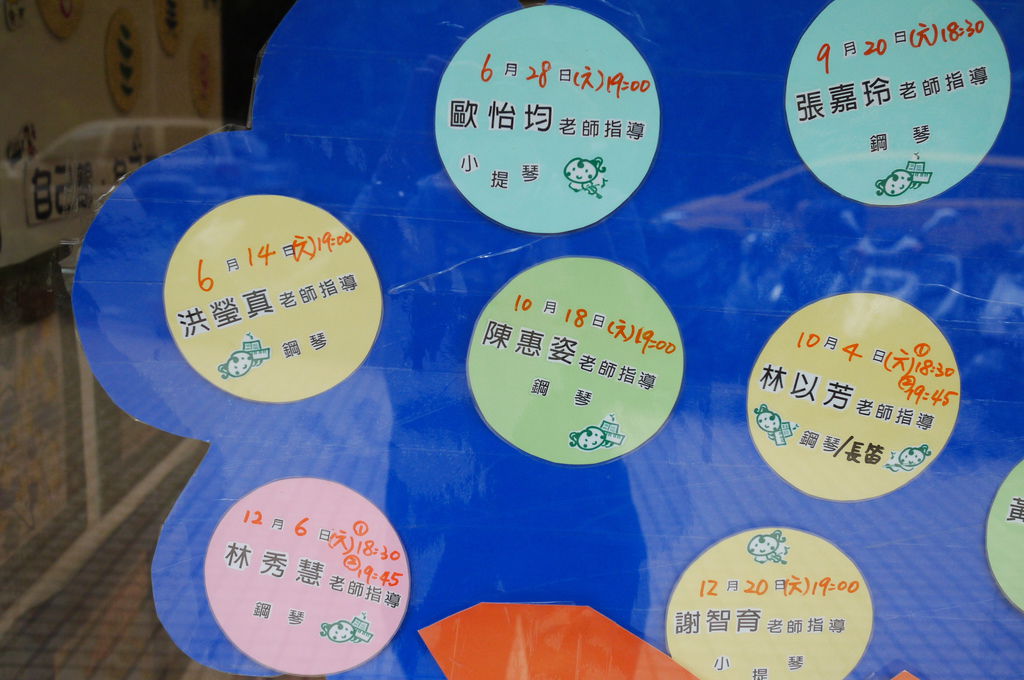 6月28日(六)19:00
歐怡均老師指導
小提琴
9月20日(六)18:30
張嘉玲老師指導
鋼琴
自己
6月14日(六)19:00
洪瑩真老師指導
鋼琴
10月18日(六)19:00
陳惠姿老師指導
鋼琴
10月4日(六)①18:30
②19:45
林以芳老師指導
鋼琴/長笛
12月6日(六)①18:30
②19:45
林秀慧老師指導
鋼琴
12月20日(六)19:00
謝智育老師指導
小提琴
黃